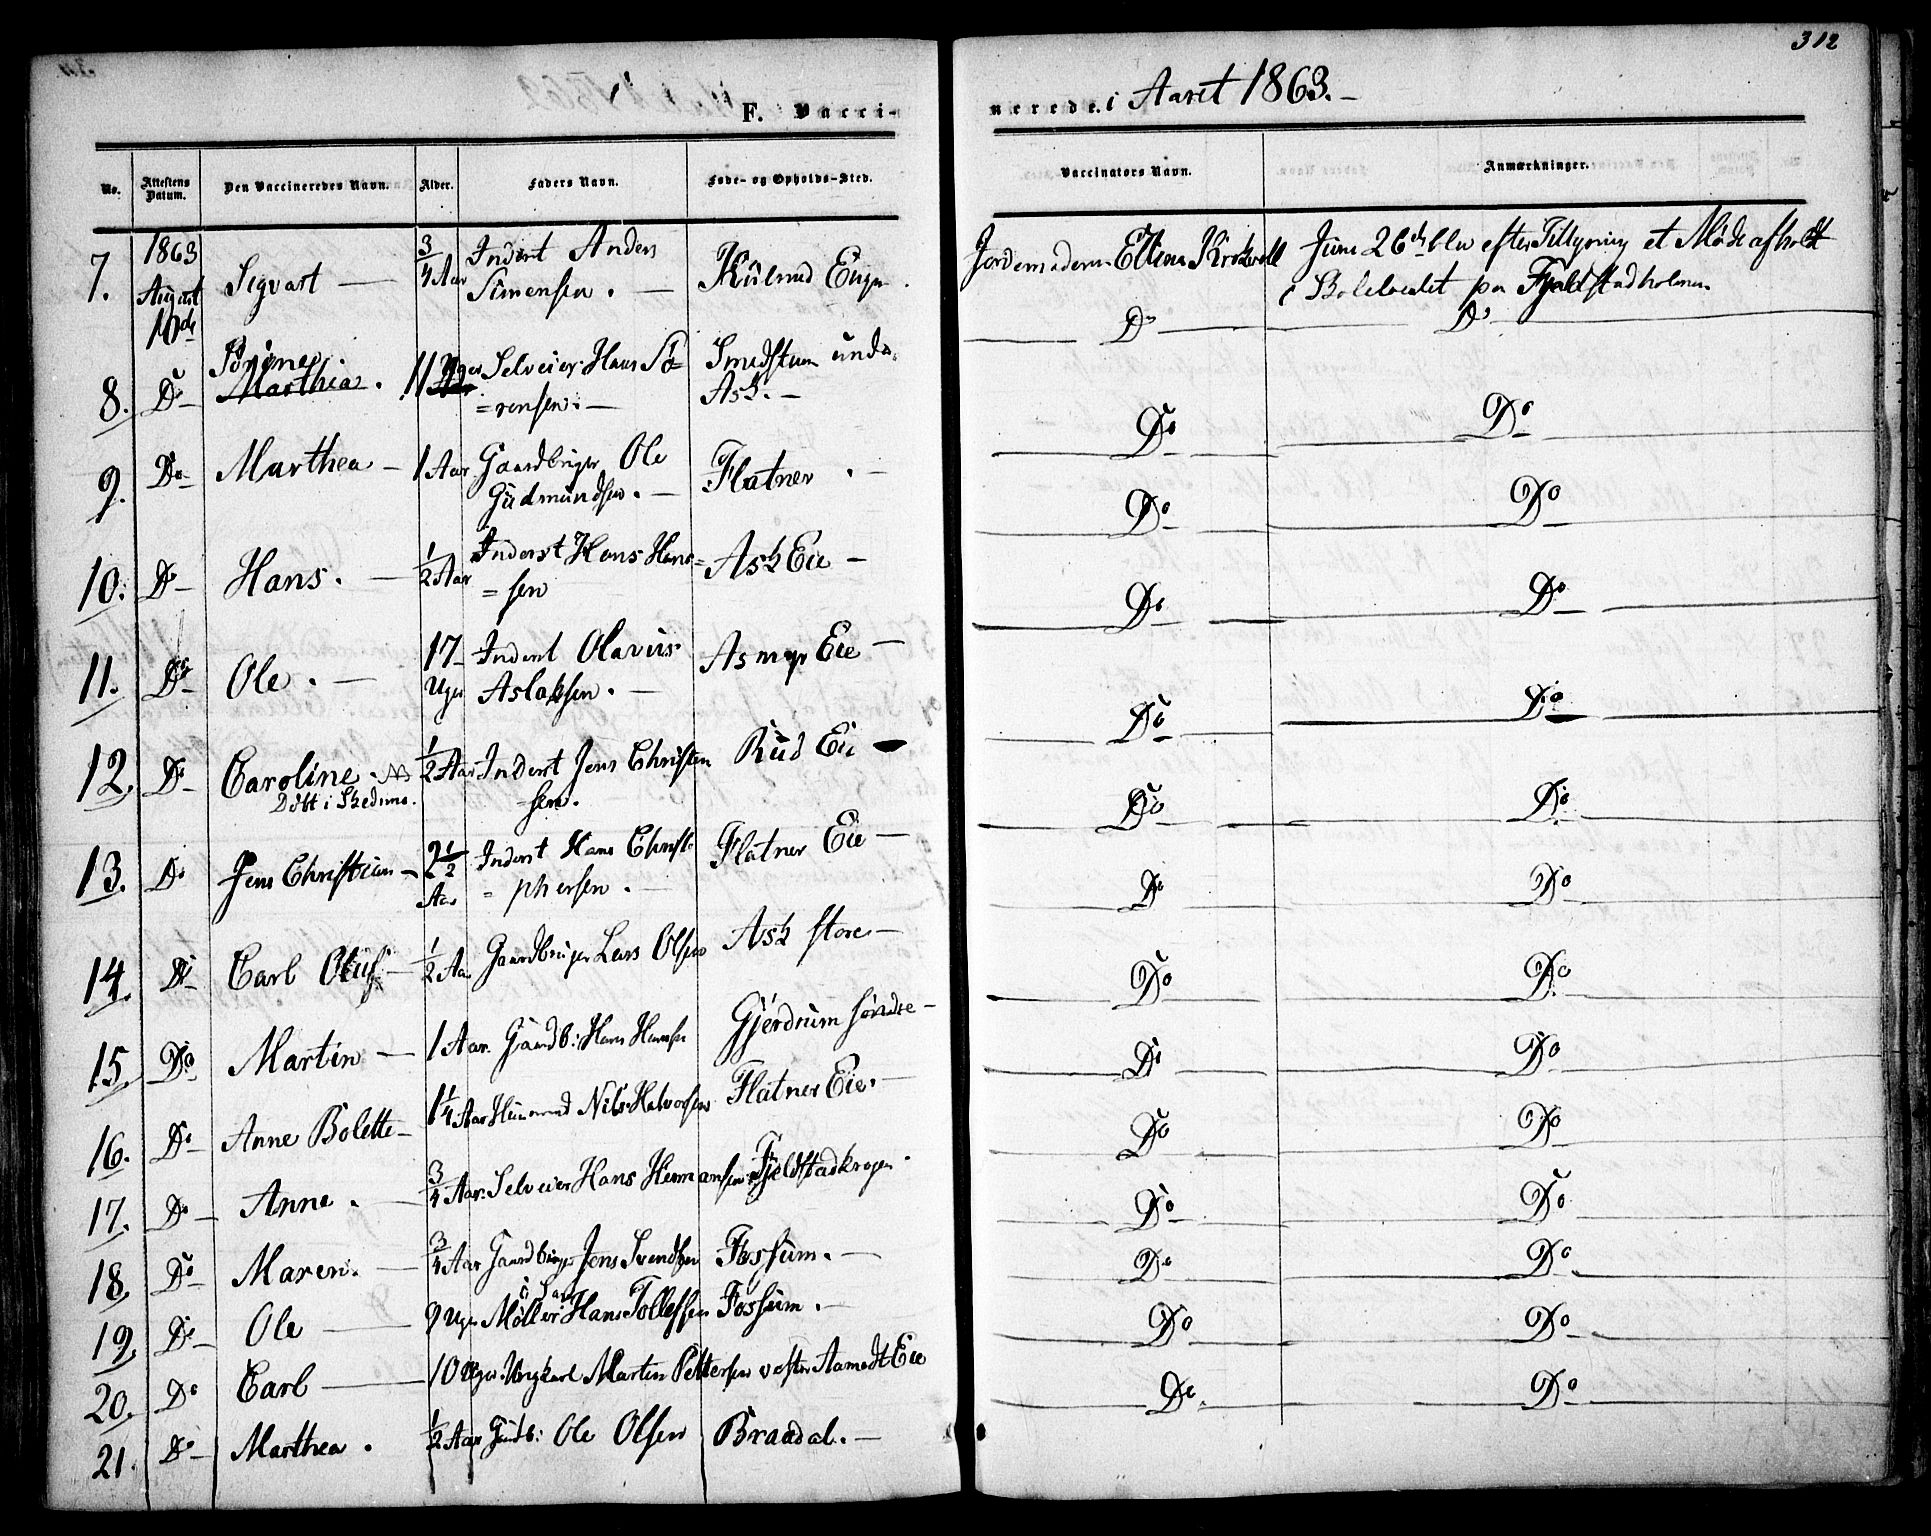 312
F. Vacci-
nerede. i Aaret 1863.-
No.
Attestens Datum.
Den Vaccineredes Navn.
Alder.
Faders Navn.
Føde- og Opholds-Sted.
Vaccinators Navn.
Anmærkninger.
7. 1863 August 10de Sigvart — 3/4 Aar Inderst Anders Simensen. — Eiges.
Jordemoderen
Juni 26de blev efter Tillysning et Møde afholdt
i Skolelocalet paa Fjeldstadholmen
Do — Do
8. Do Sørine. Marthea. 11 Uger Aar Selveier Hans Sö=
=rensen. — Smedstuen under Ask. —
Do Do
9. Do Marthea — 1 Aar Gaardbruger Ole
Gudmundsen. — Flatner. —
Do Do
10. Do Hans. — 1/2 Aar Inderst Hans Han=
=sen Ask Eie —
Do Do
11. Do Ole. — 17 Uger Inderst Olavus
Aslaksen. — Asmyr Eie —
Do Do
12. Do Caroline. Döbt i Skedsmo. 1/2 Aar Inderst Jens Christen
=sen. Rud Eie —
Do Do
13. Do Jens Christian — 2 1/2 Aar Inderst Hans Christ=
=phersen. — Flatner Eie —
Do Do
14. Do Carl Oluf — 1/2 Aar Gaardbruger Lars Olsen Ask store —
Do Do
15. Do Martin — 1 Aar. Gaardb: Hans Hansen Gjerdrum söndre —
Do Do
16. Do Anne Bolette — 1 1/4 Aar Huusmand Nils Halvorsen Flatner Eie. —
Do Do
17. Do Anne. — 3/4 Aar. Selveier Hans Hermansen Fjeldstadkrogen.
Do Do
18. Do Maren. — 3/4 Aar Gaardbruger Jens Svendsen Fossum. —
Do Do
19. Do Ole — 9 Uger Möller Hans Tollefsen Fossum. —
Do Do
20. Do Carl — 10 Uger. Ungkarl Martin Pettersen Aamodt Eie
Do Do
21. Do Marthea. 1/2 Aar Gaardb: Ole Olsen Braadal. —